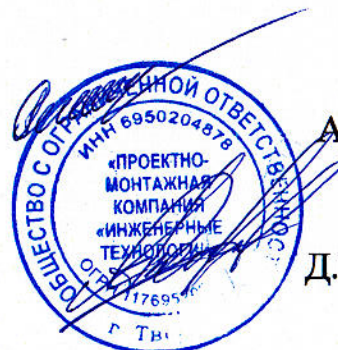 ОБЩЕСТВО С ОГРАНИЧЕННОЙ ОТВЕТСТВЕННОСТ
ИНН 6950204878
«ПРОЕКТНО-
МОНТАЖНАЯ
КОМПАНИЯ
«ИНЖЕНЕРНЫЕ
ТЕХНОЛОГИИ»
ОГРН 1176952
г. Тв
А
Д.